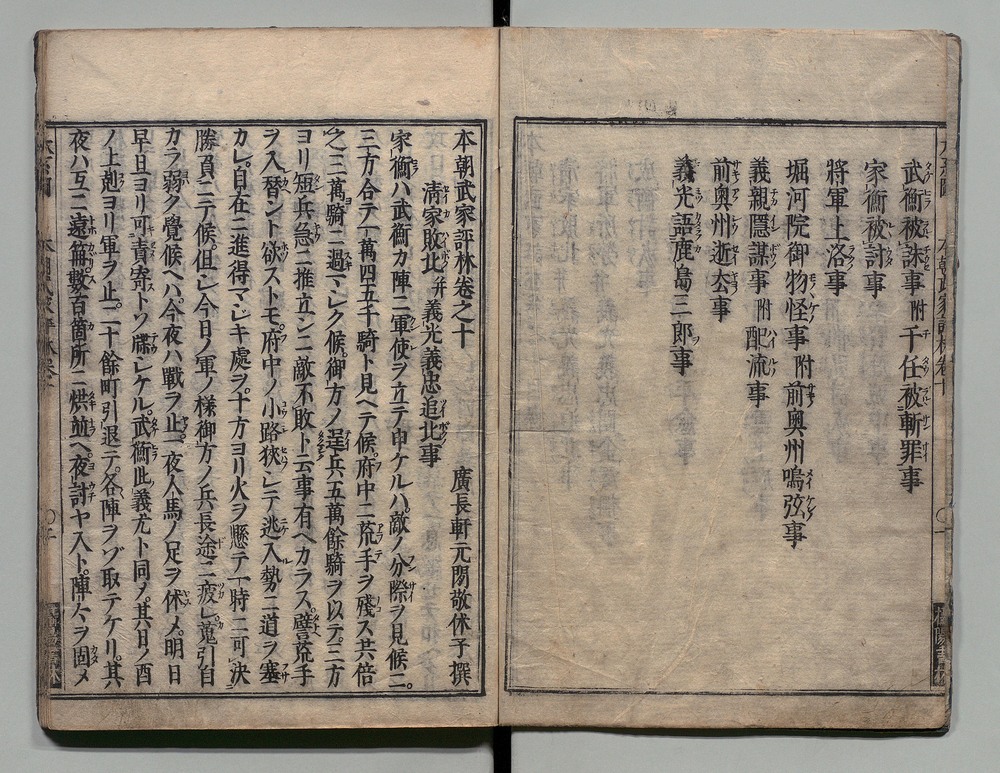 武衡被誅事附千任被斬罪事
家衡被討事
將軍上洛事
堀河院御物怪事附前奥州鳴弦事
義親隱謀事附配流事
前奥州逝去事
義光語鹿島三郎事
本朝武家評林卷之十
廣長軒元閑敬休子撰
清家敗北并義光義忠追北事
家衡ハ武衡カ陣ニ軍使ヲ立テ申ケルハ。敵ノ分際ヲ見候ニ。
三方合テ一萬四五千騎ト見ヘテ候。府中ニ荒手ヲ殘ス共倍
之三萬騎ニ過マシク候。御方ノ逞兵五萬餘騎ヲ以テ。三方
ヨリ短兵急ニ推立ンニ敵不敗ト云事有ヘカラス。譬荒手
ヲ入替ント欲ストモ。府中ノ小路狹シテ逃入勢ニ道ヲ塞
カレ。自在ニ進得マシキ處ヲ十方ヨリ火ヲ懸テ一時ニ可決
勝負ニテ候。但シ今日ノ軍ノ様御方ノ兵長途ニ疲レ。蒐引自
カラ弱ク覺候ヘハ。今夜ハ戰ヲ止。一夜人馬ノ足ヲ休メ。明日
早旦ヨリ可責寄トソ牒シケル。武衡此義尤ト同ノ。其日ノ酉
ノ上剋ヨリ軍ヲ止。二十餘町引退テ。各陣ヲゾ取テケリ。其
夜ハ互ニ遠篝數百箇所ニ烘並ヘ。夜討ヤ入ト。陣々ヲ固メ